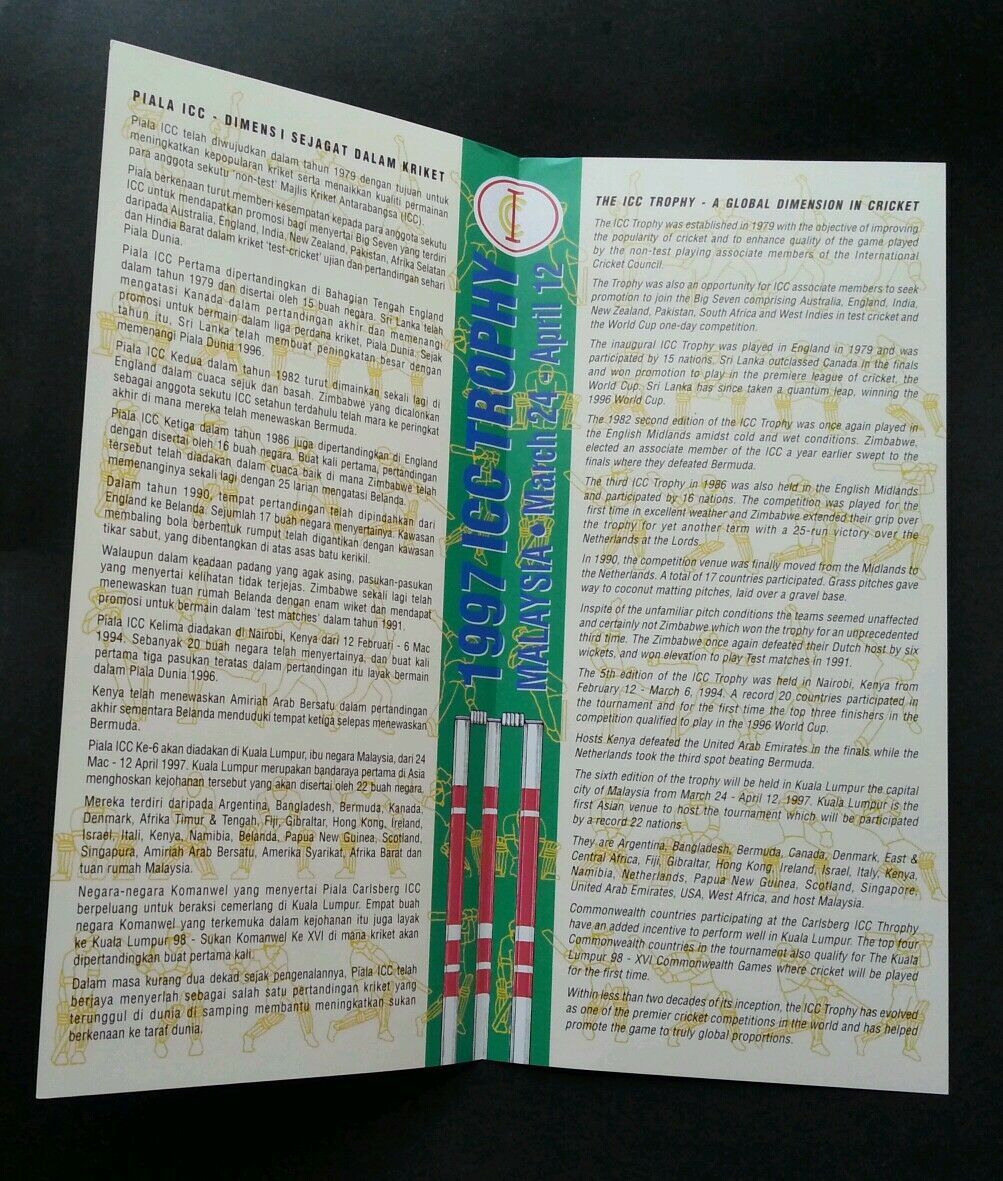 PIALA ICC - DIMENSI SEJAGAT DALAM KRIKET
Piala ICC telah diwujudkan dalam tahun 1979 dengan tujuan untuk
meningkatkan kepopularan kriket serta menaikkan kualiti permainan
para anggota sekutu 'non-test' Majlis Kriket Antarabangsa (ICC).
Piala berkenaan turut memberi kesempatan kepada para anggota sekutu
ICC untuk mendapatkan promosi bagi menyertai Big Seven yang terdiri
daripada Australia, England, India, New Zealand, Pakistan, Afrika Selatan
dan Hindia Barat dalam kriket 'test-cricket' ujian dan pertandingan sehari
Piala Dunia.
Piala ICC Pertama dipertandingkan di Bahagian Tengah England
dalam tahun 1979 dan disertai oleh 15 buah negara. Sri Lanka telah
mengatasi Kanada dalam pertandingan akhir dan memenangi
promosi untuk bermain dalam liga perdana kriket, Piala Dunia. Sejak
tahun itu, Sri Lanka telah membuat peningkatan besar dengan
memenangi Piala Dunia 1996.
Piala ICC Kedua dalam tahun 1982 turut dimainkan sekali lagi di
England dalam cuaca sejuk dan basah. Zimbabwe yang dicalonkan
sebagai anggota sekutu ICC setahun terdahulu telah mara ke peringkat
akhir di mana mereka telah menewaskan Bermuda.
Piala ICC Ketiga dalam tahun 1986 juga dipertandingkan di England
dengan disertai oleh 16 buah negara. Buat kali pertama, pertandingan
tersebut telah diadakan dalam cuaca baik di mana Zimbabwe telah
memenanginya sekali lagi dengan 25 larian mengatasi Belanda.
Dalam tahun 1990, tempat pertandingan telah dipindahkan dari
England ke Belanda. Sejumlah 17 buah negara menyertainya. Kawasan
membaling bola berbentuk rumput telah digantikan dengan kawasan
tikar sabut, yang dibentangkan di atas asas batu kerikil.
Walaupun dalam keadaan padang yang agak asing, pasukan-pasukan
yang menyertai kelihatan tidak terjejas. Zimbabwe sekali lagi telah
menewaskan tuan rumah Belanda dengan enam wiket dan mendapat
promosi untuk bermain dalam 'test matches' dalam tahun 1991.
Piala ICC Kelima diadakan di Nairobi, Kenya dari 12 Februari - 6 Mac
1994. Sebanyak 20 buah negara telah menyertainya, dan buat kali
pertama tiga pasukan teratas dalam pertandingan itu layak bermain
dalam Piala Dunia 1996.
Kenya telah menewaskan Amiriah Arab Bersatu dalam pertandingan
akhir sementara Belanda menduduki tempat ketiga selepas menewaskan
Bermuda.
Piala ICC Ke-6 akan diadakan di Kuala Lumpur, ibu negara Malaysia, dari 24
Mac - 12 April 1997. Kuala Lumpur merupakan bandaraya pertama di Asia
menghoskan kejohanan tersebut yang akan disertai oleh 22 buah negara.
Mereka terdiri daripada Argentina, Bangladesh, Bermuda, Kanada,
Denmark, Afrika Timur & Tengah, Fiji, Gibraltar, Hong Kong, Ireland,
Israel, Itali, Kenya, Namibia, Belanda, Papua New Guinea, Scotland,
Singapura, Amiriah Arab Bersatu, Amerika Syarikat, Afrika Barat dan
tuan rumah Malaysia.
Negara-negara Komanwel yang menyertai Piala Carlsberg ICC
berpeluang untuk beraksi cemerlang di Kuala Lumpur. Empat buah
negara Komanwel yang terkemuka dalam kejohanan itu juga layak
ke Kuala Lumpur 98 - Sukan Komanwel Ke XVI di mana kriket akan
dipertandingkan buat pertama kali.
Dalam masa kurang dua dekad sejak pengenalannya, Piala ICC telah
berjaya menyerlah sebagai salah satu pertandingan kriket yang
terunggul di dunia di samping membantu meningkatkan sukan
berkenaan ke taraf dunia.
1997 ICC TROPHY
MALAYSIA • March 24 - April 12
THE ICC TROPHY - A GLOBAL DIMENSION IN CRICKET
The ICC Trophy was established in 1979 with the objective of improving
the popularity of cricket and to enhance quality of the game played
by the non-test playing associate members of the International
Cricket Council.
The Trophy was also an opportunity for ICC associate members to seek
promotion to join the Big Seven comprising Australia, England, India,
New Zealand, Pakistan, South Africa and West Indies in test cricket and
the World Cup one-day competition.
The inaugural ICC Trophy was played in England in 1979 and was
participated by 15 nations. Sri Lanka outclassed Canada in the finals
and won promotion to play in the premiere league of cricket, the
World Cup. Sri Lanka has since taken a quantum leap, winning the
1996 World Cup.
The 1982 second edition of the ICC Trophy was once again played in
the English Midlands amidst cold and wet conditions. Zimbabwe,
elected an associate member of the ICC a year earlier swept to the
finals where they defeated Bermuda.
The third ICC Trophy in 1986 was also held in the English Midlands
and participated by 16 nations. The competition was played for the
first time in excellent weather and Zimbabwe extended their grip over
the trophy for yet another term with a 25-run victory over the
Netherlands at the Lords.
In 1990, the competition venue was finally moved from the Midlands to
the Netherlands. A total of 17 countries participated. Grass pitches gave
way to coconut matting pitches, laid over a gravel base.
Inspite of the unfamiliar pitch conditions the teams seemed unaffected
and certainly not Zimbabwe which won the trophy for an unprecedented
third time. The Zimbabwe once again defeated their Dutch host by six
wickets, and won elevation to play Test matches in 1991.
The 5th edition of the ICC Trophy was held in Nairobi, Kenya from
February 12 - March 6, 1994. A record 20 countries participated in
the tournament and for the first time the top three finishers in the
competition qualified to play in the 1996 World Cup.
Hosts Kenya defeated the United Arab Emirates in the finals while the
Netherlands took the third spot beating Bermuda.
The sixth edition of the trophy will be held in Kuala Lumpur the capital
city of Malaysia from March 24 - April 12, 1997. Kuala Lumpur is the
first Asian venue to host the tournament which will be participated
by a record 22 nations.
They are Argentina, Bangladesh, Bermuda, Canada, Denmark, East &
Central Africa, Fiji, Gibraltar, Hong Kong, Ireland, Israel, Italy, Kenya,
Namibia, Netherlands, Papua New Guinea, Scotland, Singapore,
United Arab Emirates, USA, West Africa, and host Malaysia.
Commonwealth countries participating at the Carlsberg ICC Throphy
have an added incentive to perform well in Kuala Lumpur. The top four
Commonwealth countries in the tournament also qualify for The Kuala
Lumpur 98 - XVI Commonwealth Games where cricket will be played
for the first time.
Within less than two decades of its inception, the ICC Trophy has evolved
as one of the premier cricket competitions in the world and has helped
promote the game to truly global proportions.